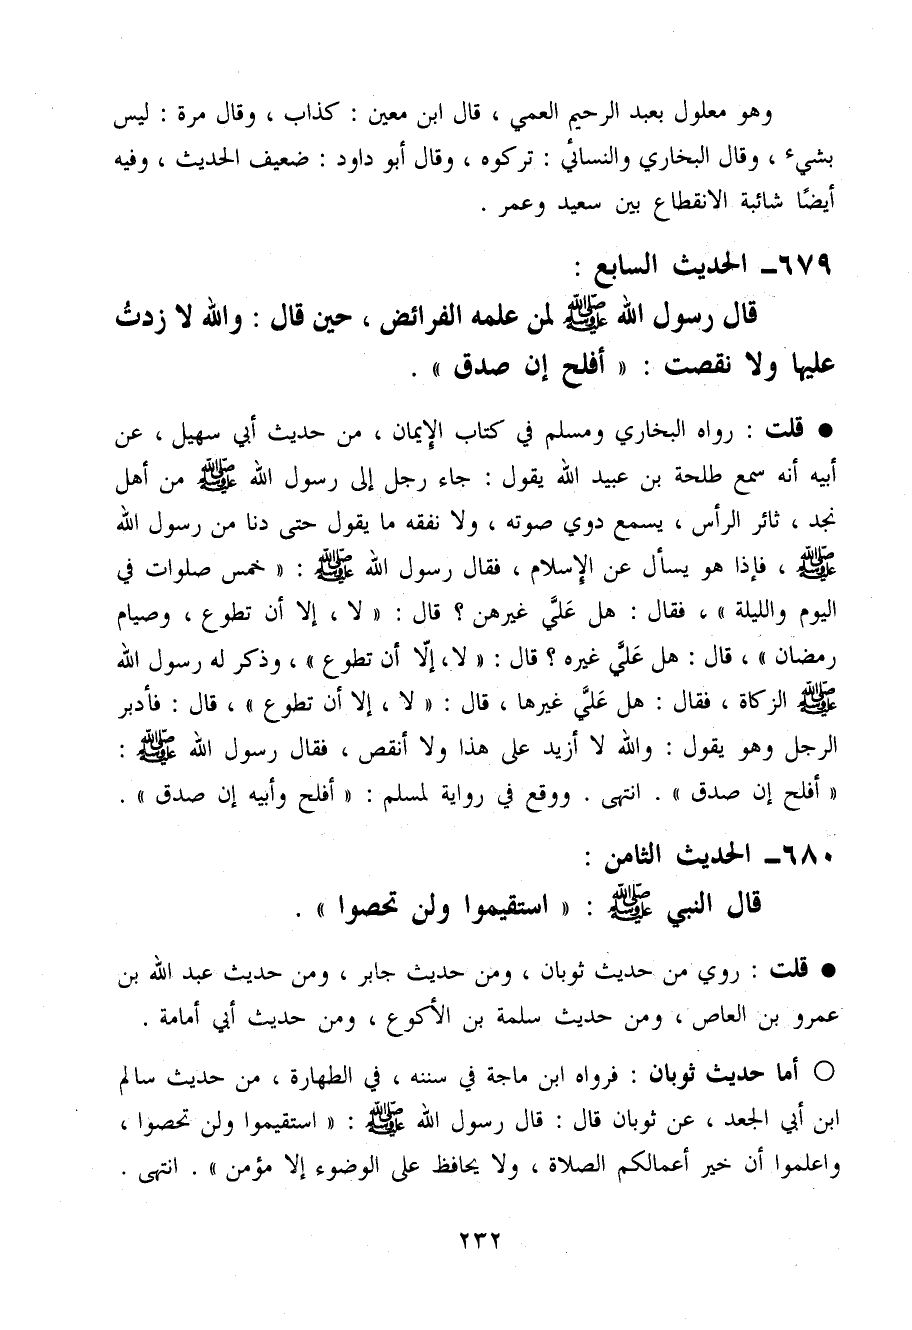 وهو معلول بعبد الرحيم العمي ، قال ابن معين : كذاب ، وقال مرة : ليس
بشيء ، وقال البخاري والنسائي : تركوه ، وقال أبو داود : ضعيف الحديث ، وفيه
أيضًا شائبة الانقطاع بين سعيد وعمر .
٦٧٩ـ الحديث السابع :
قال رسول الله ﷺ لمن علمه الفرائض ، حين قال : والله لا زدتُ
عليها ولا نقصت : « أفلح إن صدق » .
● قلت : رواه البخاري ومسلم في كتاب الإيمان ، من حديث أبي سهيل ، عن
أبيه أنه سمع طلحة بن عبيد الله يقول : جاء رجل إلى رسول الله ﷺ من أهل
نجد ، ثائر الرأس ، يسمع دوي صوته ، ولا نفقه ما يقول حتى دنا من رسول الله
ﷺ ، فإذا هو يسأل عن الإسلام ، فقال رسول الله ﷺ : « خمس صلوات في
اليوم والليلة » ، فقال : هل عَليَّ غيرهن ؟ قال : « لا ، إلا أن تطوع ، وصيام
رمضان » ، قال : هل عَليَّ غيره ؟ قال : « لا ، إلّا أن تطوع » ، وذكر له رسول الله
ﷺ الزكاة ، فقال : هل عَليَّ غيرها ، قال : « لا ، إلا أن تطوع » ، قال : فأدبر
الرجل وهو يقول : والله لا أزيد على هذا ولا أنقص ، فقال رسول الله ﷺ :
« أفلح إن صدق » . انتهى . ووقع في رواية لمسلم : « أفلح وأبيه إن صدق » .
٦٨٠ـ الحديث الثامن :
قال النبي ﷺ : « استقيموا ولن تحصوا » .
● قلت : روي من حديث ثوبان ، ومن حديث جابر ، ومن حديث عبد الله بن
عمرو بن العاص ، ومن حديث سلمة بن الأكوع ، ومن حديث أبي أمامة .
○ أما حديث ثوبان : فرواه ابن ماجة في سننه ، في الطهارة ، من حديث سالم
ابن أبي الجعد ، عن ثوبان قال : قال رسول الله ﷺ : « استقيموا ولن تحصوا ،
واعلموا أن خير أعمالكم الصلاة ، ولا يحافظ على الوضوء إلا مؤمن » . انتهى .
٢٣٢